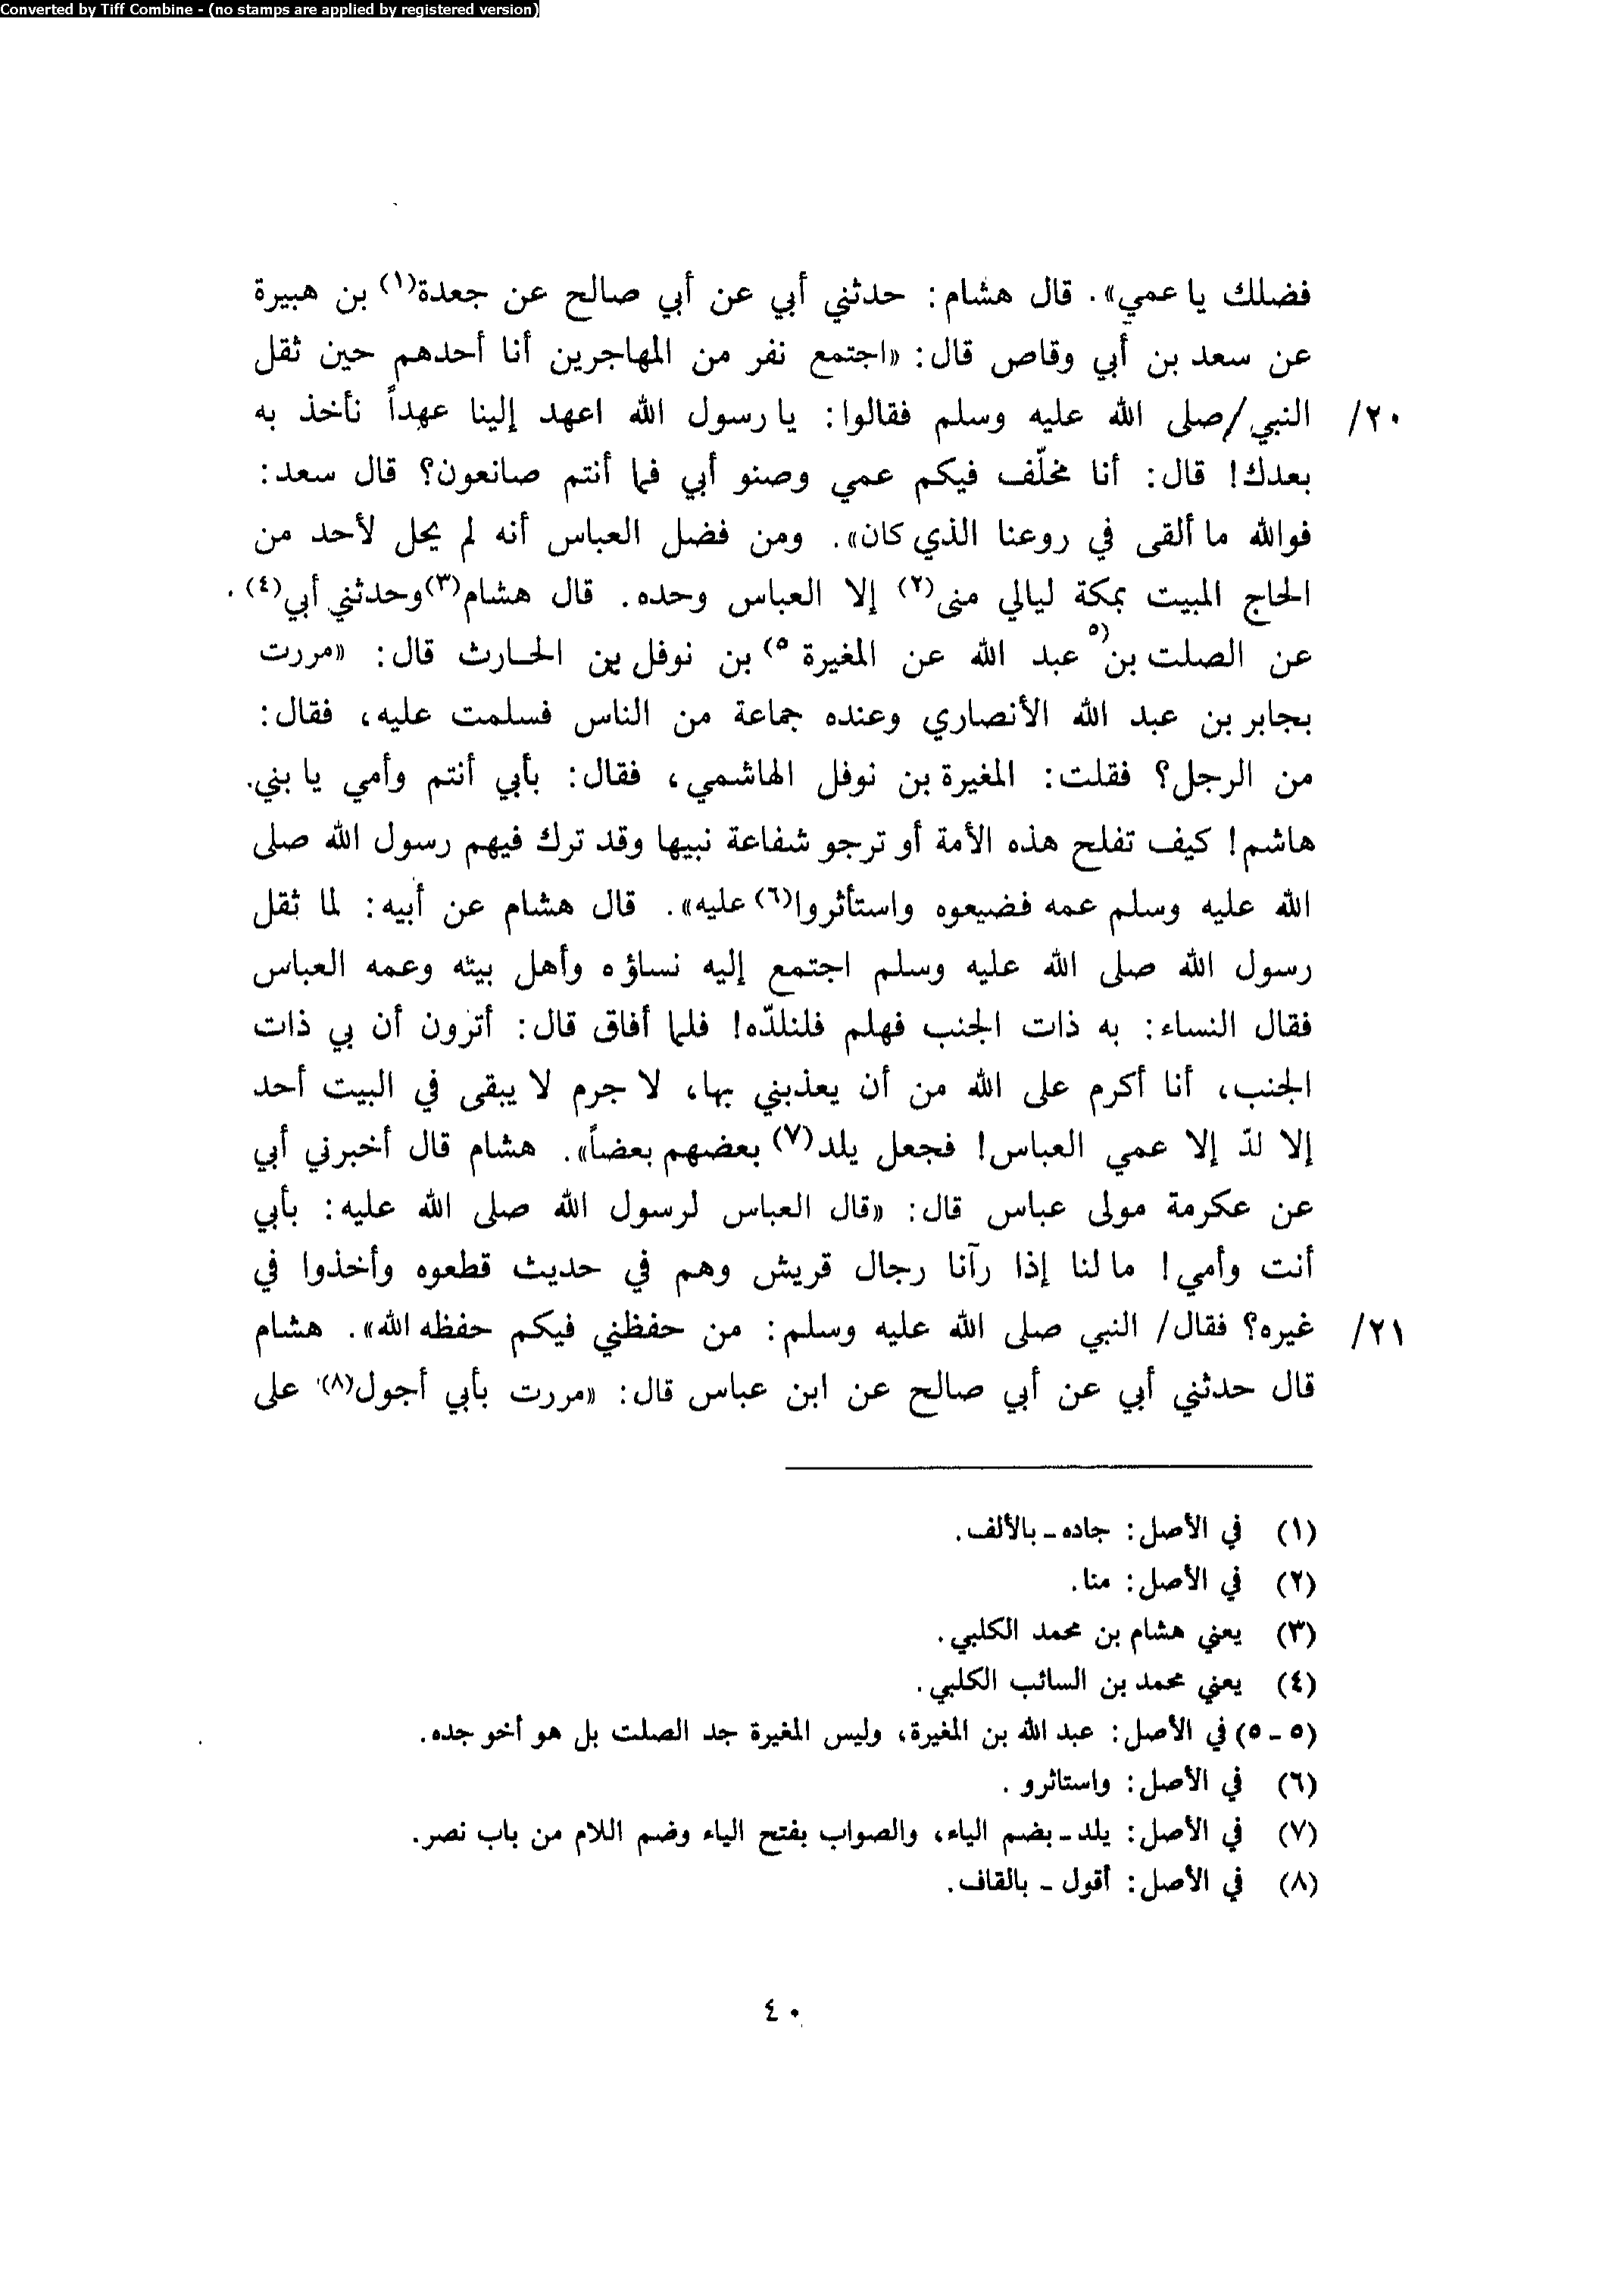 Converted by Tiff Combine - (no stamps are applied by registered version)
فضلك يا عمي». قال هشام: حدثني أبي عن أبي صالح عن جعدة(١) بن هبيرة
عن سعد بن أبي وقاص قال: «اجتمع نفر من المهاجرين أنا أحدهم حين ثقل
٢٠/ النبي/صلى الله عليه وسلم فقالوا: يا رسول الله اعهد إلينا عهداً نأخذ به
بعدك! قال: أنا مخلّف فيكم عمي وصنو أبي فما أنتم صانعون؟ قال سعد:
فوالله ما ألقى في روعنا الذي كان». ومن فضل العباس أنه لم يحل لأحد من
الحاج المبيت بمكة ليالي منى(٢) إلا العباس وحده. قال هشام(٣) وحدثني أبي(٤).
عن الصلت بن (٥ عبد الله عن المغيرة ٥) بن نوفل بن الحارث قال: «مررت
بجابر بن عبد الله الأنصاري وعنده جماعة من الناس فسلمت عليه، فقال:
من الرجل؟ فقلت: المغيرة بن نوفل الهاشمي، فقال: بأبي أنتم وأمي يا بني.
هاشم! كيف تفلح هذه الأمة أو ترجو شفاعة نبيها وقد ترك فيهم رسول الله صلى
الله عليه وسلم عمه فضيعوه واستأثروا(٦) عليه». قال هشام عن أبيه: لما ثقل
رسول الله صلى الله عليه وسلم اجتمع إليه نساؤه وأهل بيته وعمه العباس
فقال النساء: به ذات الجنب فهلم فلنلدّه! فلما أفاق قال: أترون أن بي ذات
الجنب، أنا أكرم على الله من أن يعذبني بها، لا جرم لا يبقى في البيت أحد
إلا لدّ إلا عمي العباس! فجعل يلد(٧) بعضهم بعضاً». هشام قال أخبرني أبي
عن عكرمة مولى عباس قال: «قال العباس لرسول الله صلى الله عليه: بأبي
أنت وأمي! ما لنا إذا رآنا رجال قريش وهم في حديث قطعوه وأخذوا في
٢١/ غيره؟ فقال/ النبي صلى الله عليه وسلم: من حفظني فيكم حفظه الله». هشام
قال حدثني أبي عن أبي صالح عن ابن عباس قال: «مررت بأبي أجول(٨) على
(١) في الأصل: جاده ـ بالألف.
(٢) في الأصل: منا.
(٣) يعني هشام بن محمد الكلبي.
(٤) يعني محمد بن السائب الكلبي.
(٥ ـ ٥) في الأصل: عبد الله بن المغيرة، وليس المغيرة جد الصلت بل هو أخو جده.
(٦) في الأصل: واستاثرو.
(٧) في الأصل: يلد ـ بضم الياء، والصواب بفتح الياء وضم اللام من باب نصر.
(٨) في الأصل: أقول ـ بالقاف.
٤٠